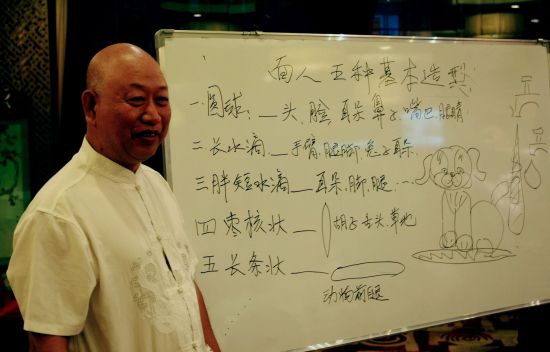 面人五种基本造型
一圆球:—头、脸、耳朵、鼻子、嘴巴、眼睛
二长水滴—手臂、腿脚、兔子耳朵、
三胖短水滴—耳朵、脚、腿、…
四枣核状—胡子、舌头、草地
五长条状—
动物前腿